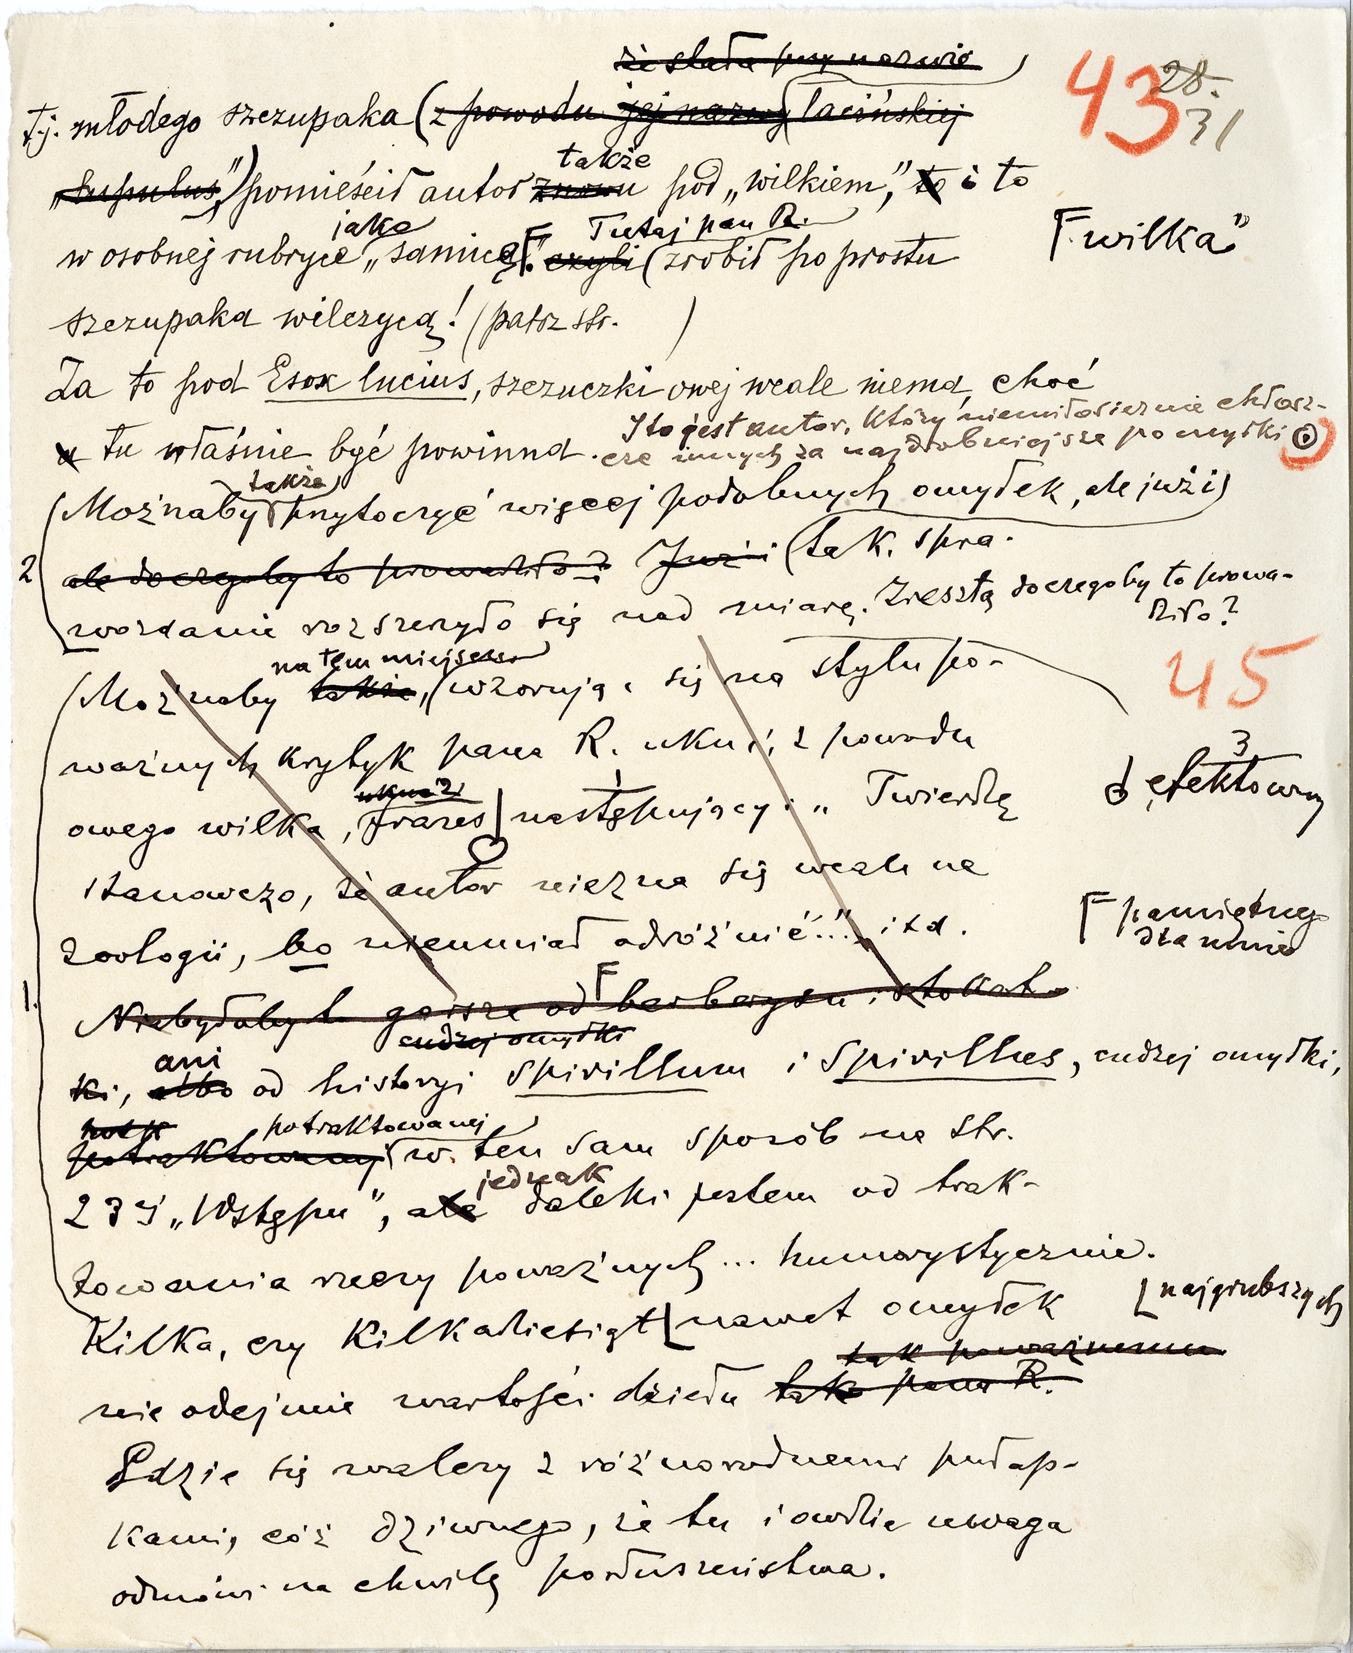 że stała przy nazwie
43 28. 31
t.j. młodego szczupaka (z powodu jej nazwy łacińskiej
„lupulus”,) pomieścił autor znowu także pod „wilkiem”, i to
w osobnej rubryce jako „samicę”. czyli Tutaj pan R. (zrobił po prostu
„wilka”
szczupaka wilczycą! (patrz str. )
Za to pod Esox lucius, szczuczki owej wcale niema, choć
tu właśnie być powinna. I to jest autor, który niemiłosiernie chłosz-
cze innych za najdrobniejsze pomyłki
(Możnaby także przytoczyć więcej podobnych omyłek, ale już i)
2 ale do czegoby to prowadziło? Już i (tak spra-
wozdanie rozszerzyło się nad miarę. Zresztą do czegoby to prowa-
dziło?
45
(Możnaby także, na tem miejscu (wzorując się na stylu po-
ważnych krytyk pana R. ukuć, z powodu
owego wilka, ukuć frazes następujący: „Twierdzę
3 efektowny
stanowczo, że autor nie zna się wcale na
zoologii, bo nie umiał odróżnić...” itd.
pamiętnego
dla mnie
1. Niebyłaby to gorsze od berberysu i stokrot-
ki, albo ani od historyi spirillum i spirillus, cudzej omyłki,
cudzej omyłki
potraktowanej potraktowanej w ten sam sposób na str.
233 „Wstępu”, ale jednak daleki jestem od trak-
towania rzeczy poważnych... humorystycznie.
Kilka, czy kilkadziesiąt nawet omyłek
najgrubszych
tak poważnemu
nie odejmie wartości dziełu tak pana R.
Gdzie się walczy z różnorodnemi pułap-
kami, cóż dziwnego, że tu i owdzie uwaga
odmówi na chwilę posłuszeństwa.